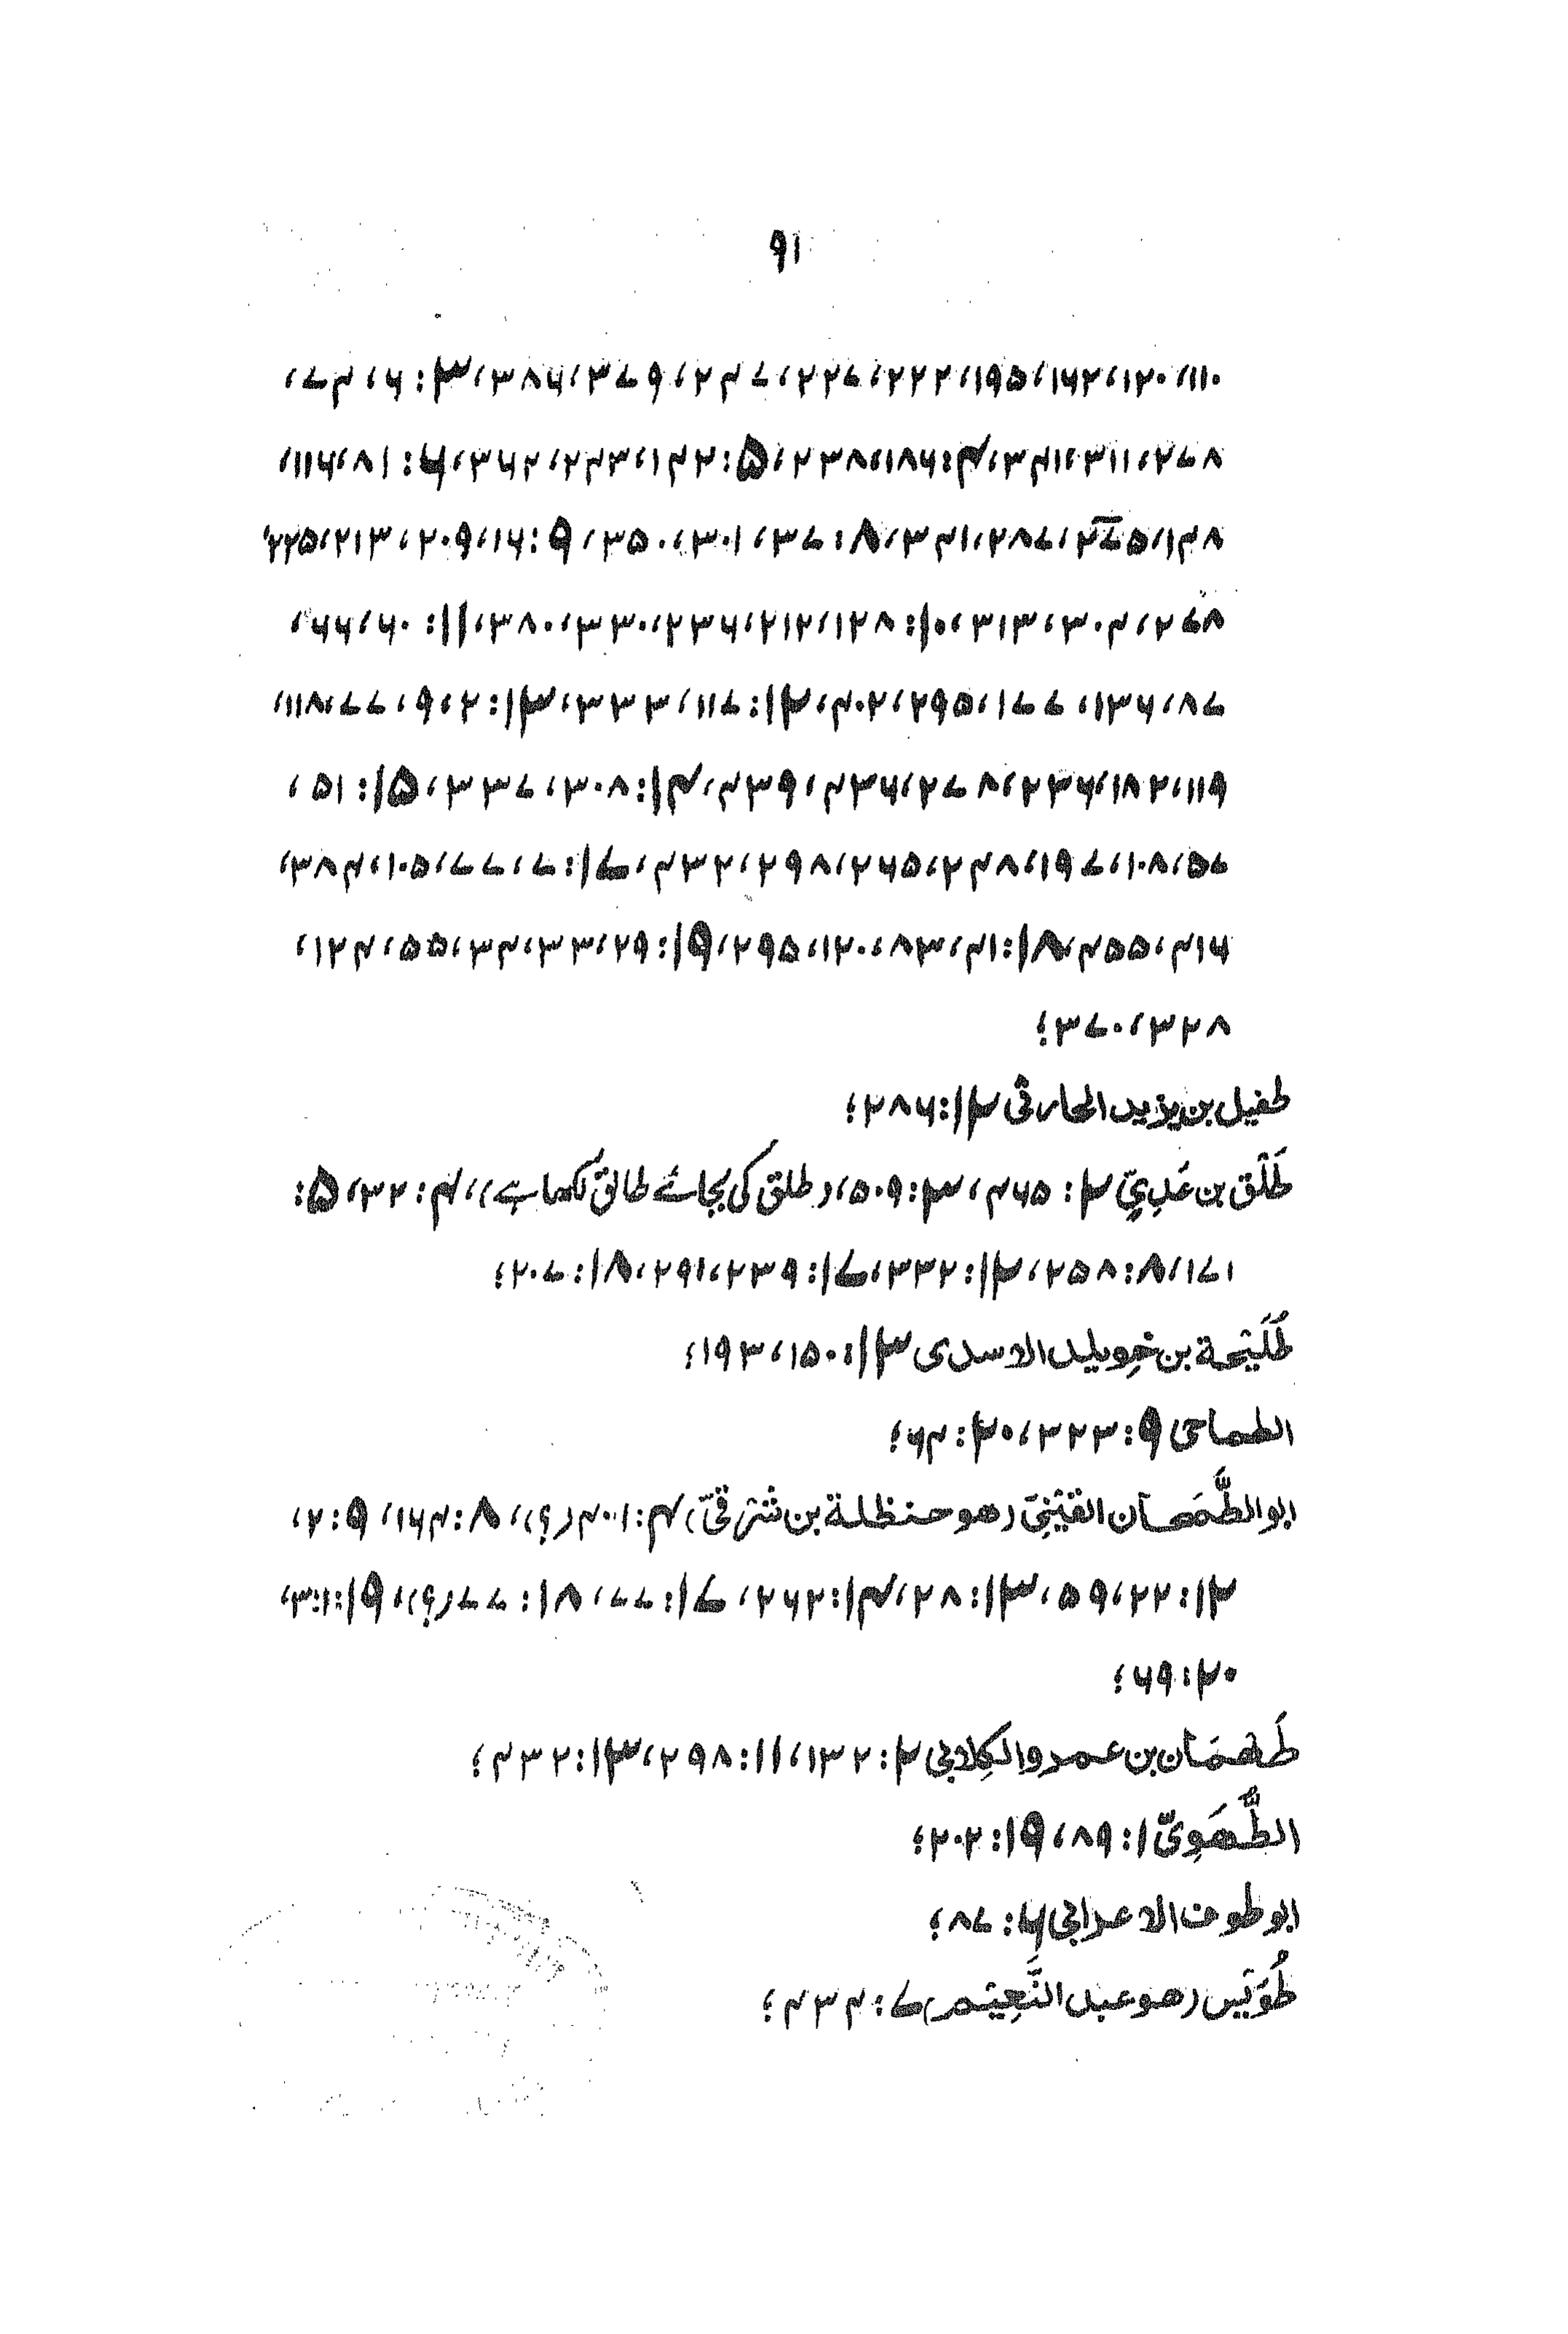 ۹۱
۱۱۰، ۱۲۰، ۱۶۲، ۱۹۵، ۲۲۲، ۲۲۷، ۲۴۷، ۳۷۹، ۳۸۶، ۳: ۶، ۴۷،
۲۷۸، ۳۱۱، ۳۴۱، ۴: ۱۸۶، ۲۳۸، ۵: ۱۴۲، ۲۴۳، ۳۶۴، ۶: ۱۷، ۱۱۶،
۱۴۸، ۲۷۵، ۲۸۷، ۳۴۱، ۸: ۳۷، ۳۰۱، ۳۵۰، ۹: ۱۶، ۲۰۹، ۲۱۳، ۲۲۵،
۲۷۸، ۳۰۴، ۳۱۳، ۱۰: ۱۲۸، ۲۱۲، ۲۳۶، ۳۳۰، ۳۸۰، ۱۱: ۶۰، ۶۶،
۸۷، ۱۳۶، ۱۷۷، ۲۹۵، ۴۰۲، ۱۲: ۱۱۷، ۳۳۳، ۱۳: ۲، ۹، ۷۷، ۱۱۸،
۱۱۹، ۱۸۲، ۲۳۶، ۲۷۸، ۴۳۶، ۴۳۹، ۱۴: ۳۰۸، ۳۳۷، ۱۵: ۵۱،
۵۷، ۱۰۸، ۱۹۷، ۲۴۸، ۲۶۵، ۲۹۸، ۴۳۲، ۱۷: ۷، ۷۷، ۱۰۵، ۳۸۴،
۴۱۶، ۴۵۵، ۱۸: ۴۱، ۸۳، ۱۲۰، ۲۹۵، ۱۹: ۲۹، ۳۳، ۳۴، ۵۵، ۱۲۴،
۳۲۸، ۳۷۰؛
طفیل بن یزید الحارثی ۱۲: ۲۸۶؛
طَلْق بن عَدِیّ ۲: ۴۶۵، ۳: ۵۰۹، (طلق کی بجائے طالق لکھا ہے)، ۴: ۳۲، ۵:
۱۷۱، ۸: ۲۵۸، ۱۲: ۳۳۲، ۱۷: ۲۳۹، ۲۹۱، ۱۸: ۲۰۷؛
طُلَیْحة بن خویلد الاسدی ۱۳: ۱۵۰، ۱۹۳؛
الطماحی ۹: ۳۲۳، ۲۰: ۶۴؛
ابو الطَّمَحان القَیْنِیّ (هو حنظلة بن شرقیّ) ۴: ۴۰۱ (؟)، ۸: ۱۶۴، ۹: ۷،
۱۲: ۲۲، ۵۹، ۱۳: ۲۸، ۱۴: ۲۶۲، ۱۷: ۷۷، ۱۸: ۷۷ (؟)، ۱۹: ۳۰۱،
۲۰: ۶۹؛
طَهمَان بن عمرو الکِلابی ۲: ۱۳۲، ۱۱: ۲۹۸، ۱۳: ۴۳۲؛
الطُّهَوِیّ ۱: ۸۹، ۱۹: ۲۰۲؛
ابو طوف الاعرابی ۶: ۸۷؛
طُوَیْس (هو عبد النَّعِیْم) ۷: ۴۳۴؛